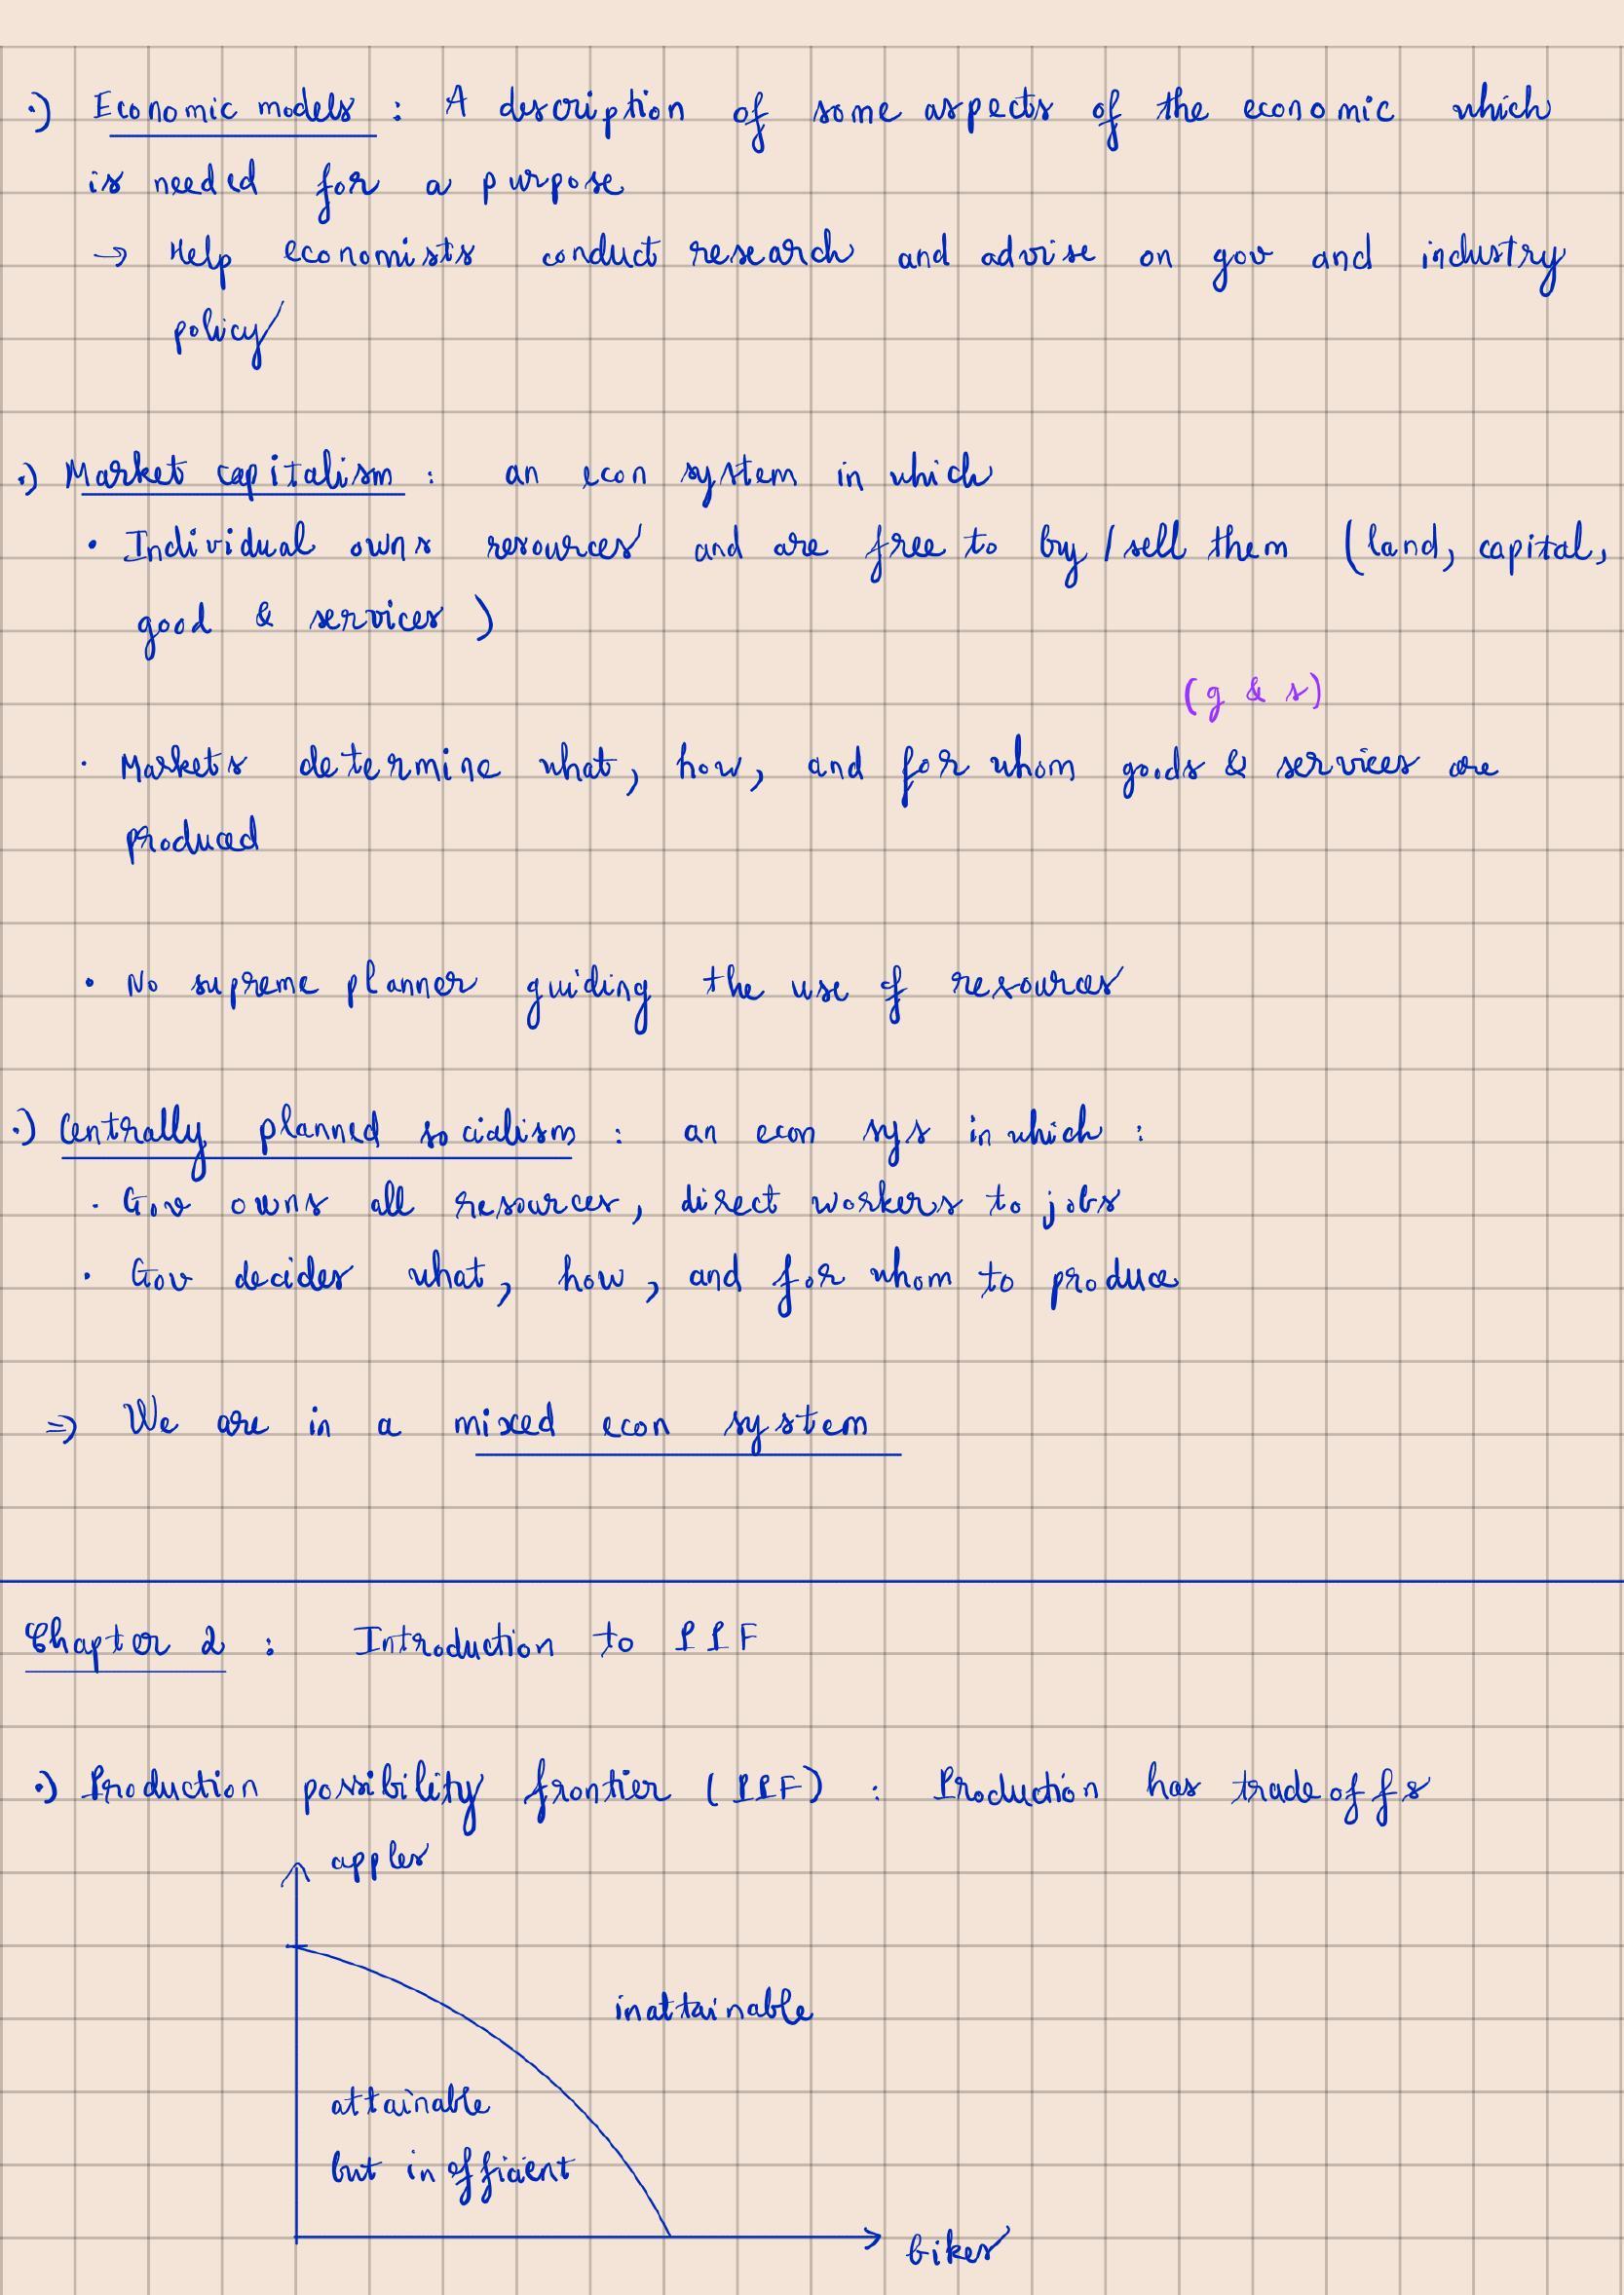 ·) Economic models : A description of some aspects of the economic which
is needed for a purpose
→ Help economists conduct research and advise on gov and industry
policy
·) Market capitalism : an econ system in which
• Individual owns resources and are free to by / sell them (land, capital,
good & services )
(g & s)
· Markets determine what, how, and for whom goods & services are
produced
• No supreme planner guiding the use of resources
·) Centrally planned socialism : an econ sys in which :
· Gov owns all resources, direct workers to jobs
· Gov decides what, how, and for whom to produce
⇒ We are in a mixed econ system
Chapter 2 : Introduction to PPF
·) Production possibility frontier (PPF) : Production has tradeoffs
apples
inattainable
attainable
but inefficient
bikes